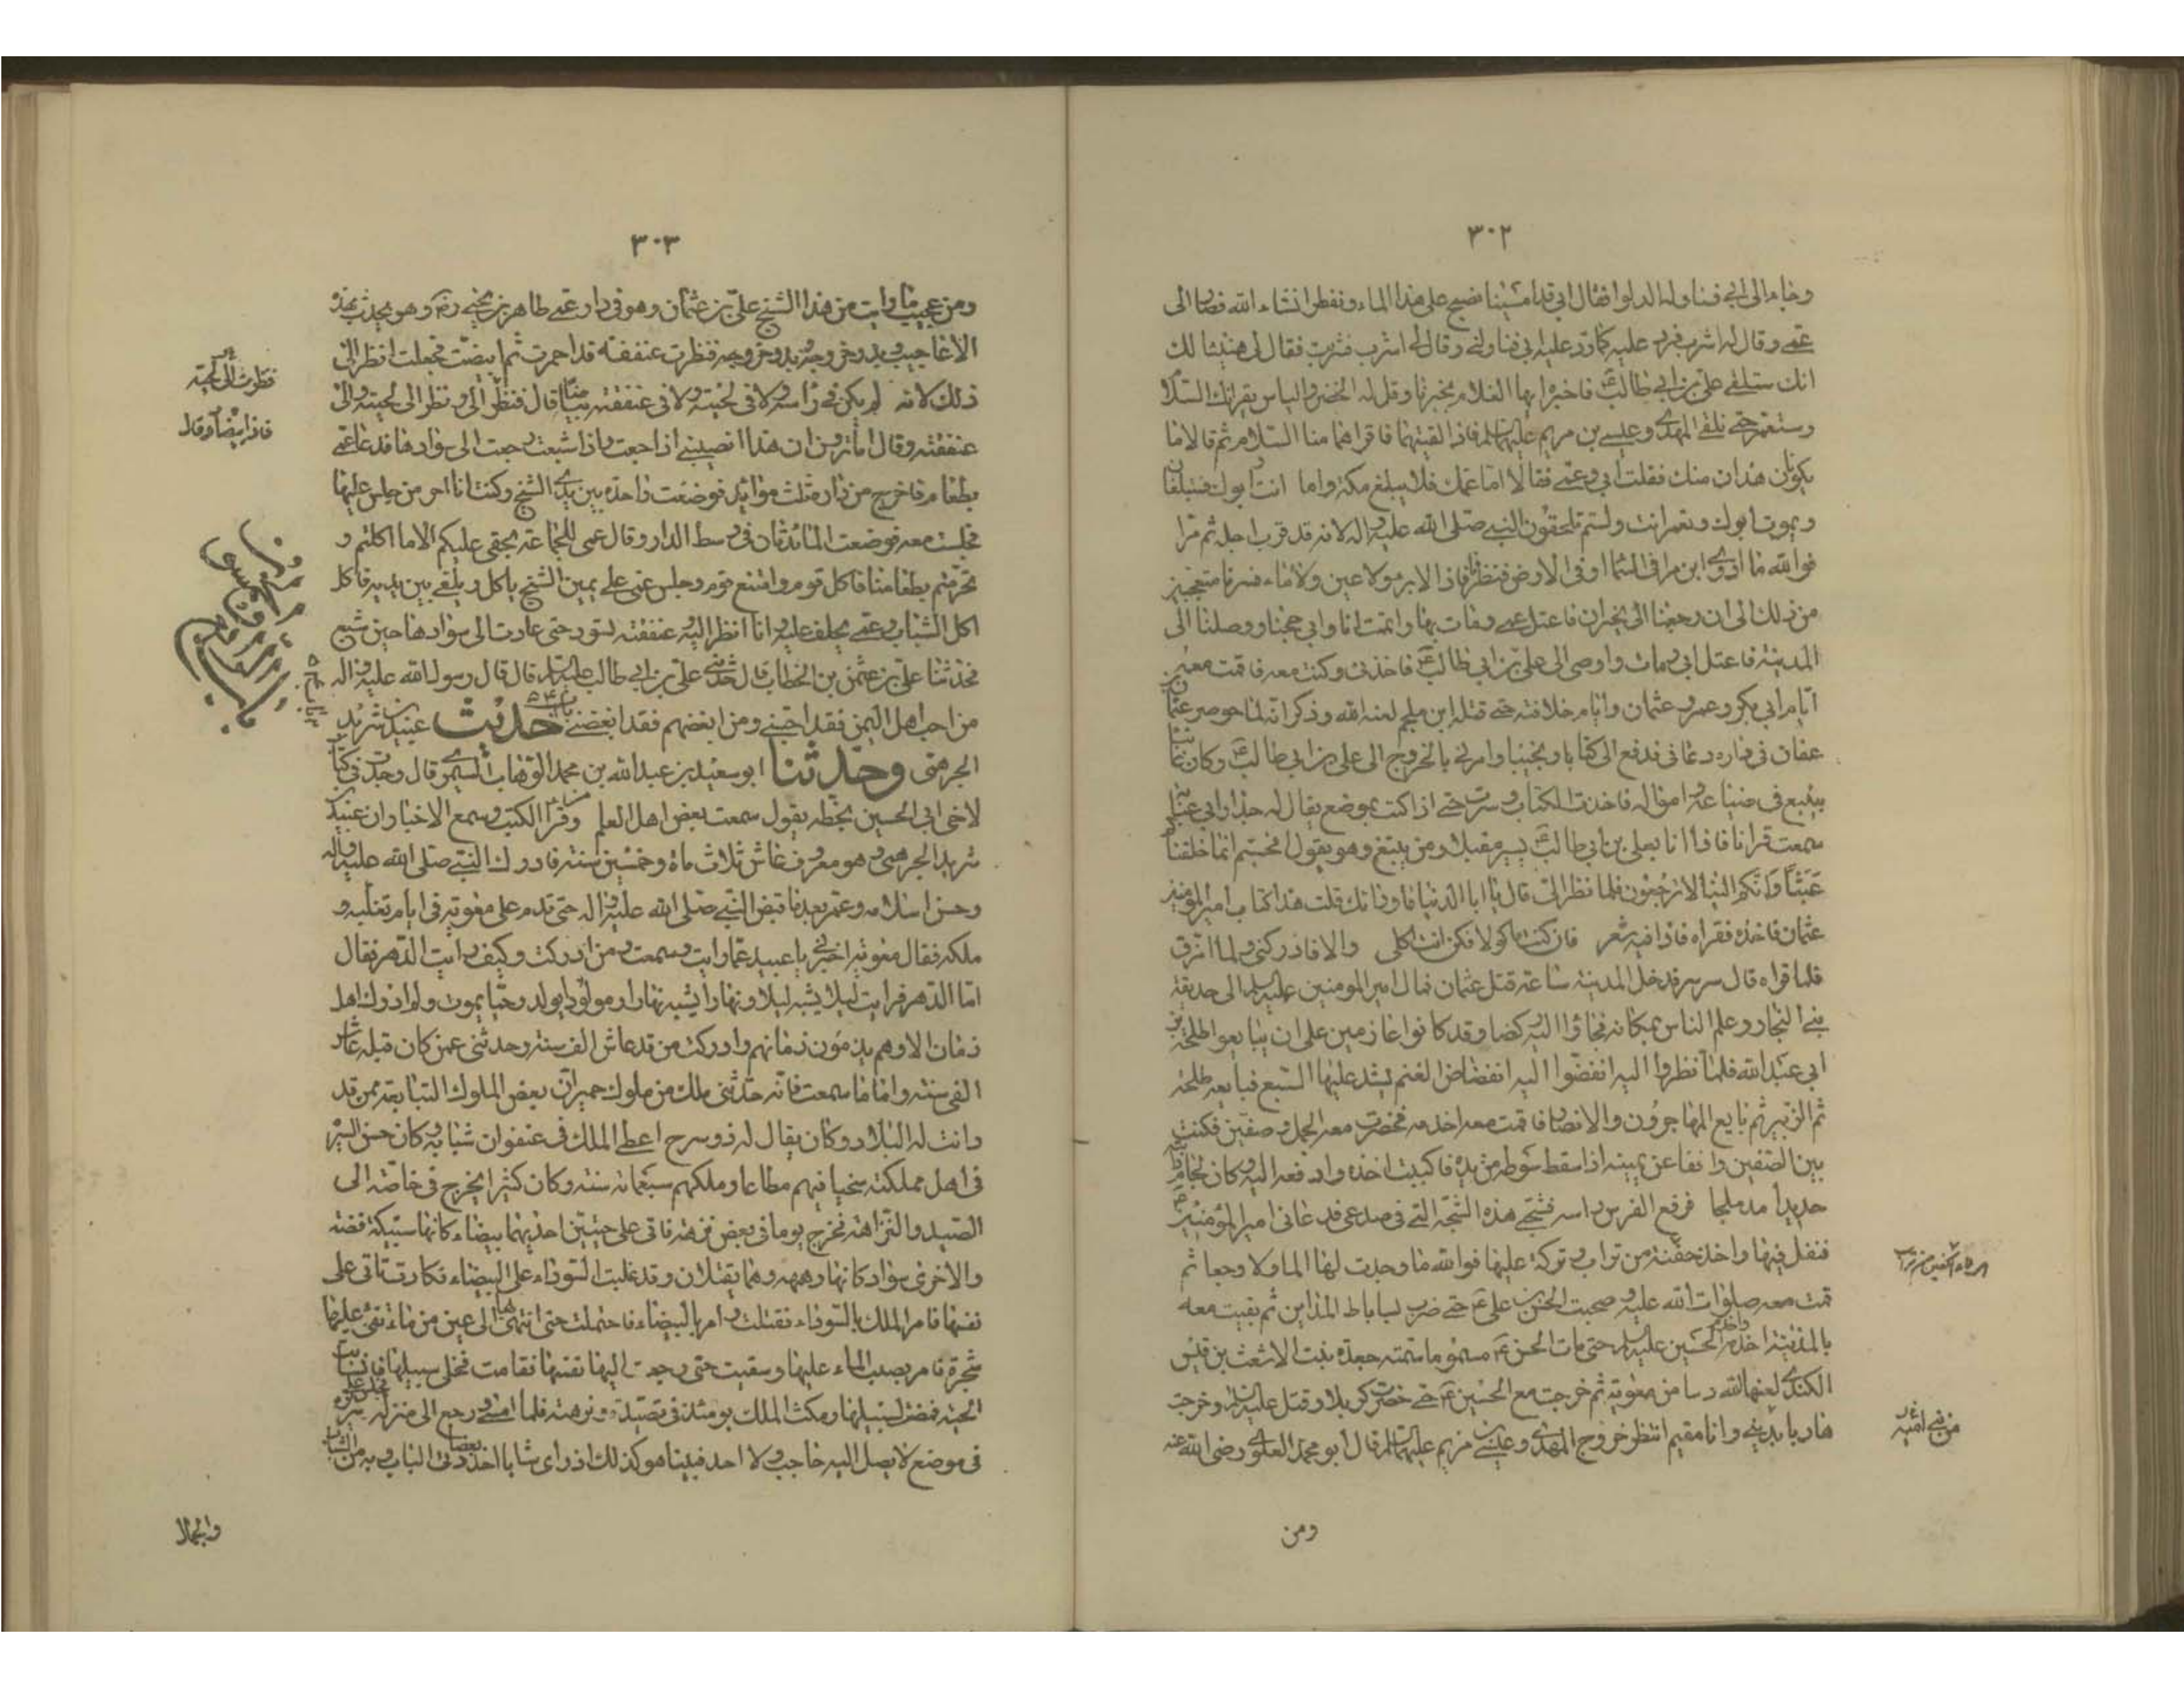 ٣٠٢
وجاء الى ابي فناوله الدلو فقال ابي قد امسينا نصبح على هذا الماء ونفطر انشاء الله فصار الى
عمي وقال له اشرب فرد عليه كما رد عليه ابي فناولني وقال لي اشرب فشربت فقال لي هنيئا لك
انك ستلقى علي بن ابي طالب ع فاخبره ايها الغلام بخبرنا وقل له الخضر والياس يقرئانك السلام
وستعمر حتى تلقى المهدي وعيسى بن مريم عليهما السلم فاذا لقيتهما فاقرأهما منا السلام ثم قالا ما
يكونان هذان منك فقلت ابي وعمي فقالا اما عمك فلا يبلغ مكة واما انت وابوك فتبلغان
ويموت ابوك وتعمر انت ولستم تلحقون النبي صلى الله عليه واله لانه قد قرب اجله ثم مرا
فوالله ما ادري اين مرا في السماء او في الارض فنظرنا فاذا لا بئر ولا عين ولا ماء فسرنا متعجبين
من ذلك الى ان رجعنا الى نجران فاعتل عمي ومات بها واتممت انا وابي حجنا ووصلنا الى
المدينة فاعتل ابي ومات واوصى الى علي بن ابي طالب ع فاخذني وكنت معه فاقمت معه
ايام ابي بكر وعمر وعثمان وايام خلافته حتى قتله ابن ملجم لعنه الله وذكر انه لما حوصر عثمان بن
عفان في داره دعاني فدفع الي كتابا ونجيبا وامرني بالخروج الى علي بن ابي طالب ع وكان غائبا
بينبع في ضياعه وامواله فاخذت الكتاب وسرت حتى اذا كنت بموضع يقال له جدار ابي عباية
سمعت قرانا فاذا انا بعلي بن ابي طالب ع يسير مقبلا من ينبع وهو يقول افحسبتم انما خلقناكم
عَبَثًا وَاَنَّكم الينا لا ترجعون فلما نظر الي قال يا ابا الدنيا ما وراءك قلت هذا كتاب امير المؤمنين
عثمان فاخذه فقراه فاذا فيه شعر فان كنت ماكولا فكن انت اكلي والا فادركني ولما امزق
فلما قراه قال سر سر فدخل المدينة ساعة قتل عثمان فمال امير المومنين عليه السلم الى حديقة
بني النجار وعلم الناس بمكانه فجاؤا اليه ركضا وقد كانوا عازمين على ان يبايعوا طلحة بن
ابي عبد الله فلما نظروا اليه انفضوا اليه انفضاض الغنم يشد عليها السبع فبايعه طلحة
ثم الزبير ثم بايع المهاجرون والانصار فاقمت معه اخدمه فحضرت معه الجمل وصفين فكنت
بين الصفين واقفا عن يمينه اذا سقط سوطه من يده فاكببت اخذه وادفعه اليه وكان لجام دابته
حديدا مدملجا فرفع الفرس راسه فشجني هذه الشجة التي في صدغي فدعاني امير المؤمنين ع
فتفل فيها واخذ حفنة من تراب وتركه عليها فوالله ما وجدت لها الما ولا وجعا ثم
قمت معه صلوات الله عليه وصحبت الحسن بن علي ع حتى ضرب بساباط المداين ثم بقيت معه
بالمدينة اخدمه واخدم الحسين عليه السلم حتى مات الحسن ع مسموما سمته جعدة بنت الاشعث بن قيس
الكندي لعنها الله دسا من معوية ثم خرجت مع الحسين ع حتى حضرت كربلا وقتل عليه السلم وخرجت
هاربا بديني وانا مقيم انتظر خروج المهدي وعيسى بن مريم عليهما السلم قال ابو محمد العلوي رضي الله عنه
من بني امية
ومن
٣٠٣
ومن عجيب ما رايت من هذا الشيخ علي بن عثمان وهو في دار عمي طاهر بن يحيى رض وهو يحدث بهذه
الاعاجيب وبدو خروجه فنظرت عنفقته قد احمرت ثم ابيضت فجعلت انظر الى
ذلك لانه لم يكن في راسه ولا في لحيته ولا في عنفقته بياض قال فنظر الي ونظري الى لحيته والى
عنفقته وقال ما ترون ان هذا يصيبني اذا جعت واذا شبعت رجعت الى سوادها فدعا عمي
بطعام فاخرج من داره ثلث موائد فوضعت واحدة بين يدي الشيخ وكنت انا احد من جلس عليها
فجلست معه ووضعت المائدتان في وسط الدار وقال عمي للجماعة بحقي عليكم الا ما اكلتم و
تحرمتم بطعامنا فاكل قوم وامتنع قوم وجلس عمي على يمين الشيخ ياكل ويلقي بين يديه فاكل
اكل الشباب وعمي يحلف عليه وانا انظر اليه وعنفقته تسود حتى عادت الى سوادها حين شبع
فحدثنا علي بن عثمن بن الخطاب قال حدثني علي بن ابي طالب عليه السلم قال قال رسول الله عليه واله
من احب اهل اليمن فقد احبني ومن ابغضهم فقد ابغضني حديث عبيد بن شريد
الجرهمي وحدثنا ابو سعيد بن عبد الله بن محمد الوهاب السجزي قال وجدت في كتاب
لاخي ابي الحسين بخطه يقول سمعت بعض اهل العلم وقرا الكتب وسمع الاخبار ان عبيد بن
شريد الجرهمي وهو معروف عاش ثلاث ماة وخمسين سنة فادرك النبي صلى الله عليه واله
وحسن اسلامه وعمر بعد ما قبض النبي صلى الله عليه واله حتى قدم على معوية في ايام تغلبه و
ملكه فقال معوية اخبرني يا عبيد عما رايت وسمعت ومن ادركت وكيف رايت الدهر فقال
اما الدهر فرايت ليلا يشبه ليلا ونهارا يشبه نهارا ومولودا يولد وحيا يموت ولم ادرك اهل
زمان الا وهم يذمون زمانهم وادركت من قد عاش الف سنة وحدثني عمن كان قبله عاش
الفي سنة واما ما سمعت فانه حدثني ملك من ملوك حمير ان بعض الملوك التبابعة ممن قد
دانت له البلاد وكان يقال له ذو سرح اعطي الملك في عنفوان شبابه وكان حسن السيرة
في اهل مملكته سخيا فيهم مطاعا وملكهم سبعمائة سنة وكان كثيرا يخرج في خاصته الى
الصيد والنزاهة فخرج يوما في بعض نزهه فاتى على حيتين احديهما بيضاء كانها سبيكة فضة
والاخرى سوداء كانها حممة وهما يقتتلان وقد غلبت السوداء على البيضاء فكادت تاتي على
نفسها فامر الملك بالسوداء فقتلت وامر بالبيضاء فاحتملت حتى انتهى بها الى عين من ماء نقي عليها
شجرة فامر بصب الماء عليها وسقيت حتى رجعت اليها نفسها فقامت فخلى سبيلها فانسابت
الحية فمضت لسبيلها ومكث الملك يومئذ في تصيده ونزهته فلما امسى ورجع الى منزله وجلس على سريره
في موضع لا يصل اليه حاجب ولا احد فبينا هو كذلك اذ راى شابا اخذ بعضادتي الباب وبه من الشباب
فنظرت الى لحيته
فاذا ابيضت وقال
والجمال